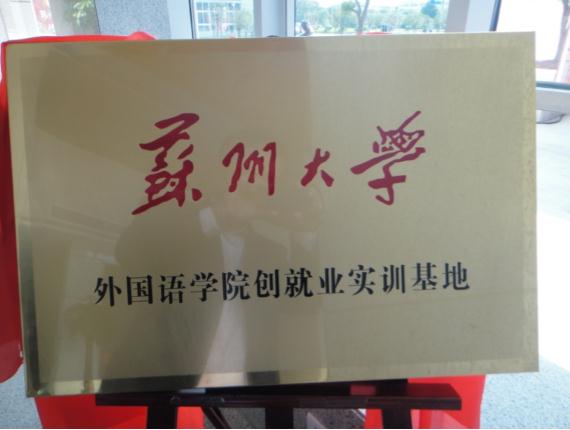 蘇州大學
外国语学院创就业实训基地